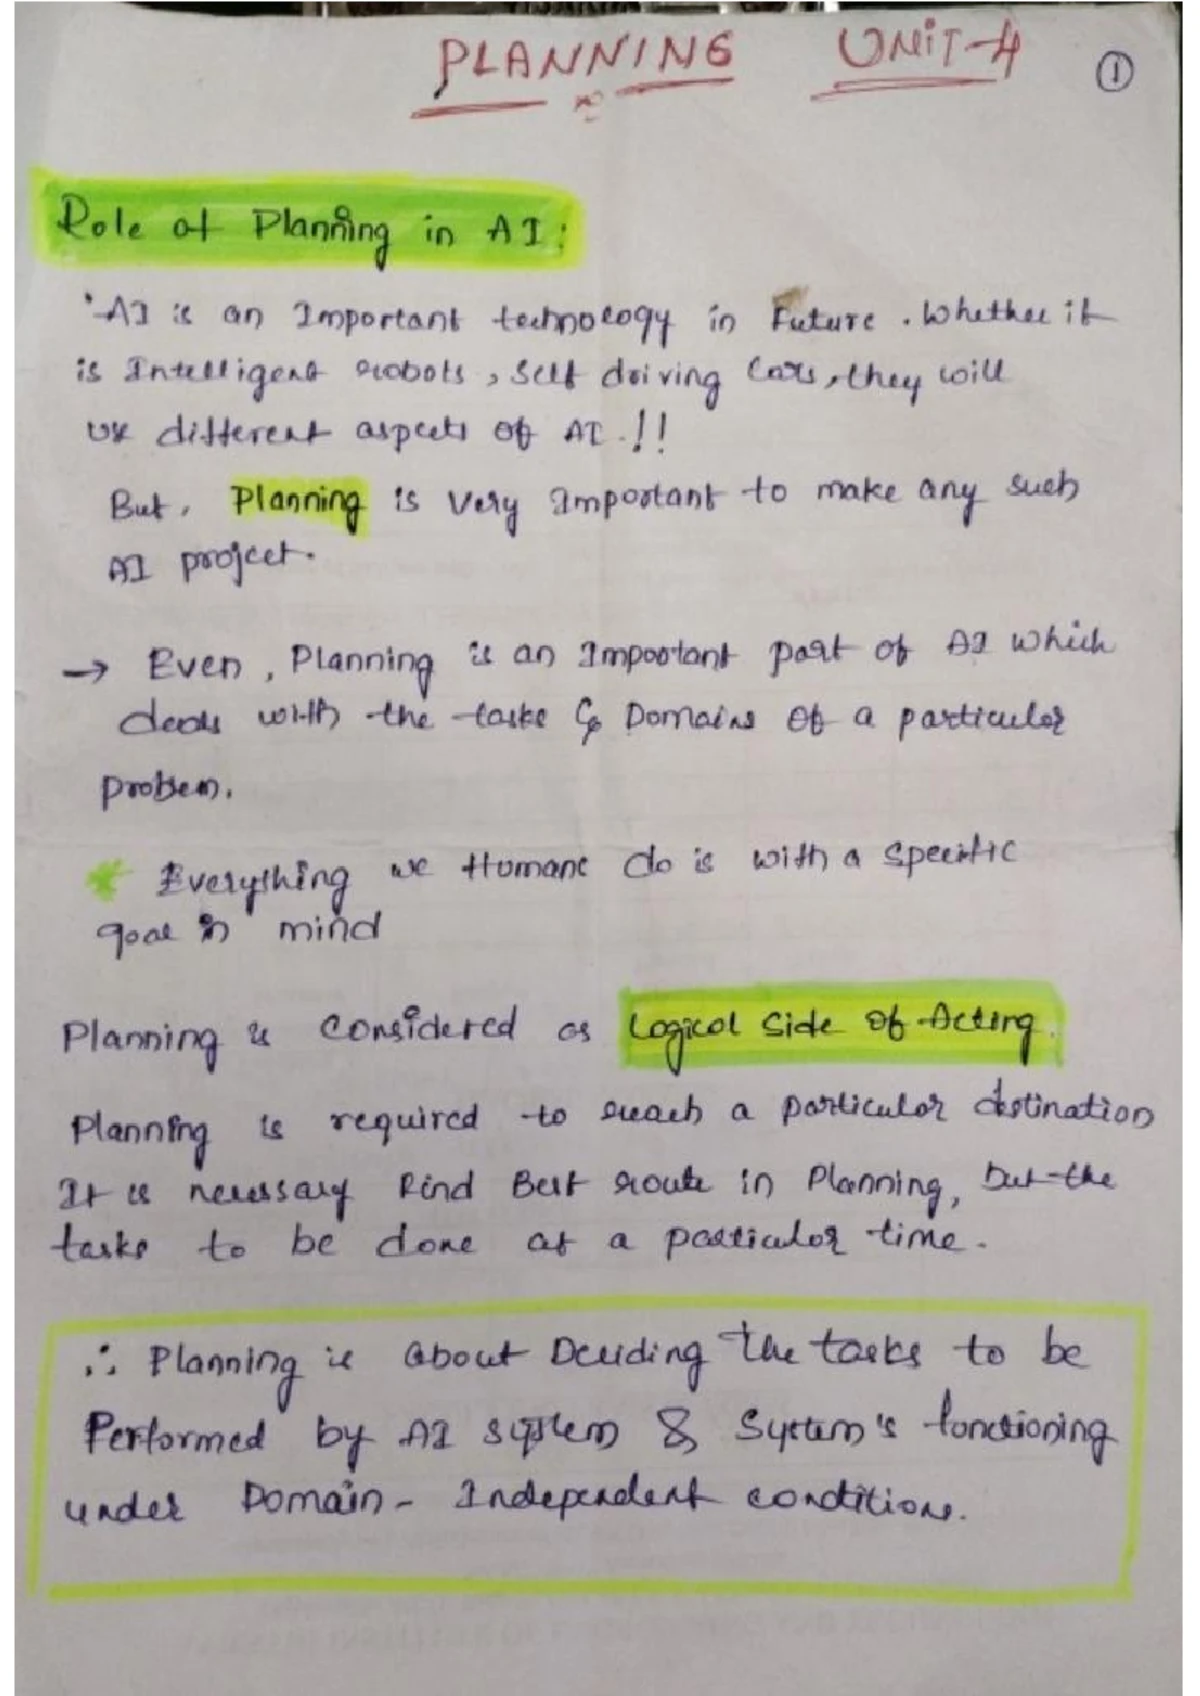 PLANNING UNIT-4
1
Role of Planning in AI:
AI is an Important technology in Future. Whether it
is Intelligent robots, Self driving Cars, they will
use different aspects of AI.!!
But, Planning is very Important to make any such
AI project.
→ Even, Planning is an Important part of AI which
deals with the tasks & Domains of a particular
problem.
* Everything we Humans do is with a specific
goal in mind
Planning is Considered as Logical Side of Acting.
Planning is required to reach a particular destination
It is necessary Find Best route in Planning, but the
tasks to be done at a particular time.
∴ Planning is about Deciding the tasks to be
Performed by AI system & System's functioning
under Domain-Independent conditions.